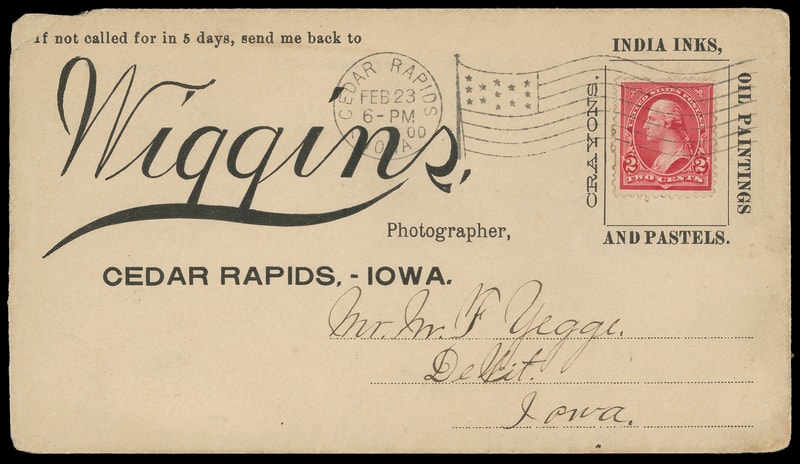 If not called for in 5 days, send me back to
Wiggins,
Photographer,
CEDAR RAPIDS, - IOWA.
CEDAR RAPIDS
FEB 23
6-PM
00
IOWA
INDIA INKS,
CRAYONS.
OIL PAINTINGS
AND PASTELS.
UNITED STATES POSTAGE
2 2
TWO CENTS
Mr. W. F Yegge.
DeWit.
Iowa.